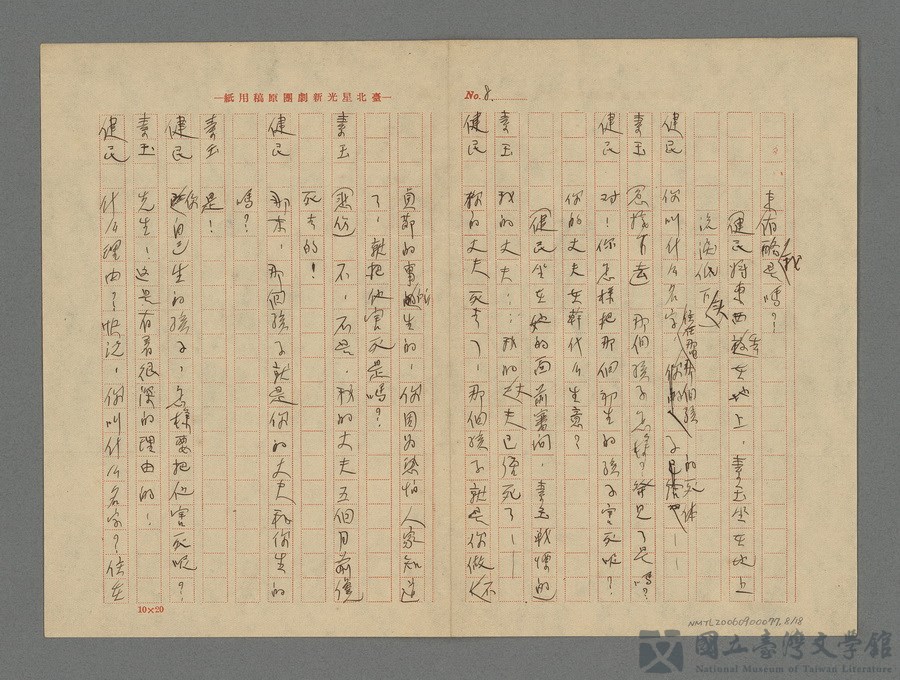 No. 8.
來佈略是嗎？！
（健民將東西放在地上，素玉坐在地上
流淚低下頭
健民 你叫什么名字，住在那裡，那個孩子的死体——
素玉 （急接下去）那個孩子怎樣？發見了是嗎？
健民 对！你怎樣把那個初生的孩子害死呢？
你的丈夫在幹什么生意？
（健民坐在她的面前審问，素玉戰慄的
素玉 我的丈夫……我的丈夫已經死了——
健民 你的丈夫死去了，那個孩子就是你做不
貞節的事所生的，你因为恐怕人家知道
了，就把他害死是嗎？
素玉 （悲伤）不，不是，我的丈夫五個月前纔
死去的！
健民 那末，那個孩子就是你的丈夫和你生的
嗎？
素玉 是！
健民 你自己生的孩子，怎樣要把他害死呢？
素玉 先生！这是有着很深的理由的！
健民 什么理由？快说，你叫什么名字？住在
—臺北星光新劇團原稿用紙—
10×20
NMTL20060900077.8/18
國立臺灣文學館
National Museum of Taiwan Literature